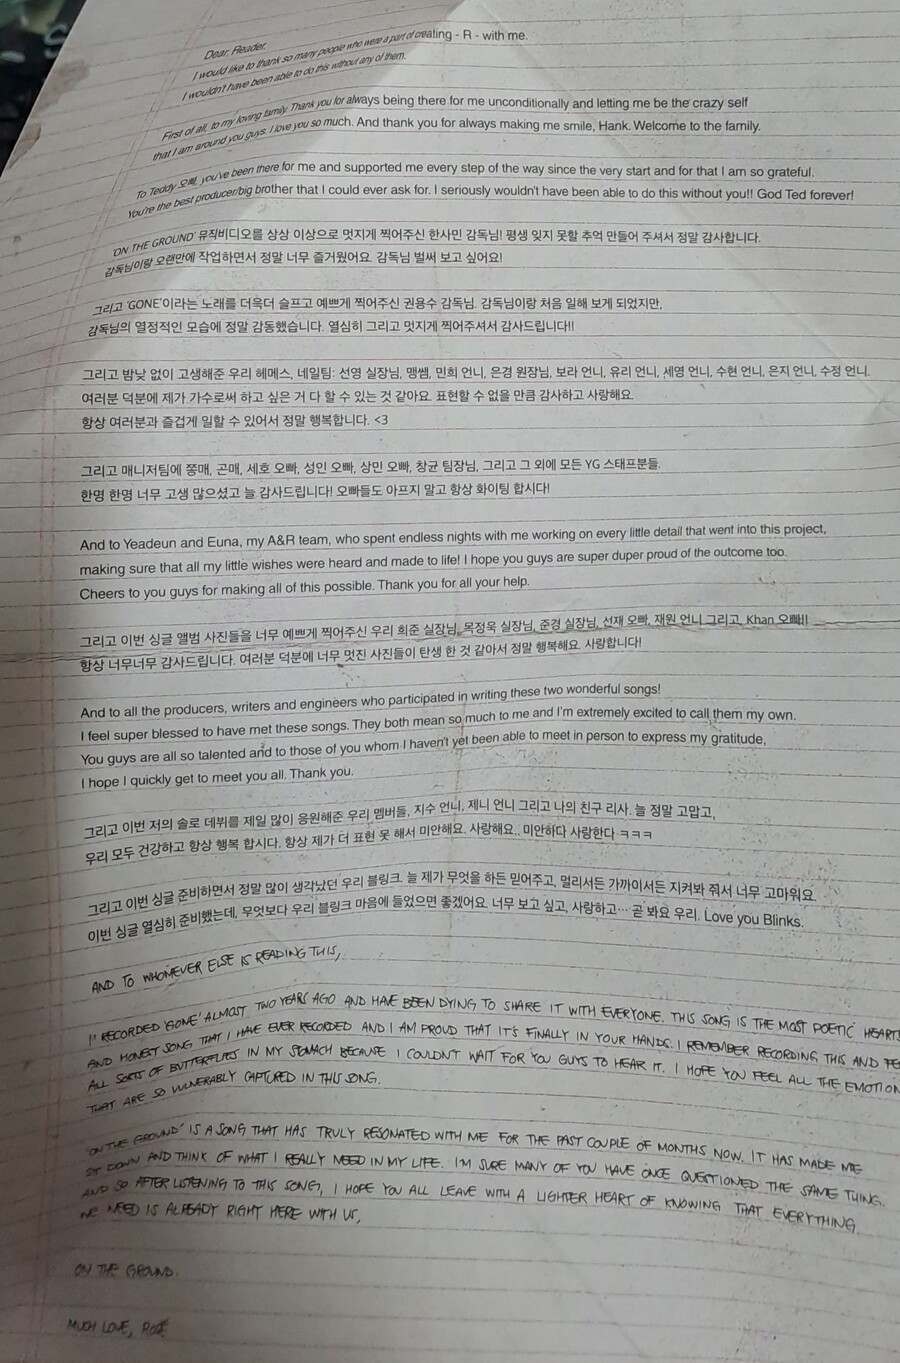 Dear. Reader,
I would like to thank so many people who were a part of creating - R - with me.
I wouldn't have been able to do this without any of them.
First of all, to my loving family. Thank you for always being there for me unconditionally and letting me be the crazy self
that I am around you guys. I love you so much. And thank you for always making me smile, Hank. Welcome to the family.
To Teddy 오빠, you've been there for me and supported me every step of the way since the very start and for that I am so grateful.
You're the best producer/big brother that I could ever ask for. I seriously wouldn't have been able to do this without you!! God Ted forever!
'ON THE GROUND' 뮤직비디오를 상상 이상으로 멋지게 찍어주신 한사민 감독님! 평생 잊지 못할 추억 만들어 주셔서 정말 감사합니다.
감독님이랑 오랜만에 작업하면서 정말 너무 즐거웠어요. 감독님 벌써 보고 싶어요!
그리고 'GONE'이라는 노래를 더욱더 슬프고 예쁘게 찍어주신 권용수 감독님. 감독님이랑 처음 일해 보게 되었지만,
감독님의 열정적인 모습에 정말 감동했습니다. 열심히 그리고 멋지게 찍어주셔서 감사드립니다!!
그리고 밤낮 없이 고생해준 우리 헤메스, 네일팀: 선영 실장님, 맹쌤, 민희 언니, 은경 원장님, 보라 언니, 유리 언니, 세영 언니, 수현 언니, 은지 언니, 수정 언니.
여러분 덕분에 제가 가수로써 하고 싶은 거 다 할 수 있는 것 같아요. 표현할 수 없을 만큼 감사하고 사랑해요.
항상 여러분과 즐겁게 일할 수 있어서 정말 행복합니다. <3
그리고 매니저팀에 쫑매, 곤매, 세호 오빠, 성인 오빠, 상민 오빠, 창균 팀장님, 그리고 그 외에 모든 YG 스태프분들.
한명 한명 너무 고생 많으셨고 늘 감사드립니다! 오빠들도 아프지 말고 항상 화이팅 합시다!
And to Yeadeun and Euna, my A&R team, who spent endless nights with me working on every little detail that went into this project,
making sure that all my little wishes were heard and made to life! I hope you guys are super duper proud of the outcome too.
Cheers to you guys for making all of this possible. Thank you for all your help.
그리고 이번 싱글 앨범 사진들을 너무 예쁘게 찍어주신 우리 희준 실장님, 목정욱 실장님, 준경 실장님, 선재 오빠, 재원 언니 그리고, Khan 오빠!!
항상 너무너무 감사드립니다. 여러분 덕분에 너무 멋진 사진들이 탄생 한 것 같아서 정말 행복해요. 사랑합니다!
And to all the producers, writers and engineers who participated in writing these two wonderful songs!
I feel super blessed to have met these songs. They both mean so much to me and I'm extremely excited to call them my own.
You guys are all so talented and to those of you whom I haven't yet been able to meet in person to express my gratitude,
I hope I quickly get to meet you all. Thank you.
그리고 이번 저의 솔로 데뷔를 제일 많이 응원해준 우리 멤버들, 지수 언니, 제니 언니 그리고 나의 친구 리사. 늘 정말 고맙고,
우리 모두 건강하고 항상 행복 합시다. 항상 제가 더 표현 못 해서 미안해요. 사랑해요.. 미안하다 사랑한다 ㅋㅋㅋ
그리고 이번 싱글 준비하면서 정말 많이 생각났던 우리 블링크. 늘 제가 무엇을 하든 믿어주고, 멀리서든 가까이서든 지켜봐 줘서 너무 고마워요.
이번 싱글 열심히 준비했는데, 무엇보다 우리 블링크 마음에 들었으면 좋겠어요. 너무 보고 싶고, 사랑하고… 곧 봐요 우리. Love you Blinks.
AND TO WHOMEVER ELSE IS READING THIS,
I RECORDED 'GONE' ALMOST TWO YEARS AGO AND HAVE BEEN DYING TO SHARE IT WITH EVERYONE. THIS SONG IS THE MOST POETIC HEART
AND HONEST SONG THAT I HAVE EVER RECORDED AND I AM PROUD THAT IT'S FINALLY IN YOUR HANDS. I REMEMBER RECORDING THIS AND FE
ALL SORTS OF BUTTERFLIES IN MY STOMACH BECAUSE I COULDN'T WAIT FOR YOU GUYS TO HEAR IT. I HOPE YOU FEEL ALL THE EMOTION
THAT ARE SO VULNERABLY CAPTURED IN THIS SONG.
'ON THE GROUND' IS A SONG THAT HAS TRULY RESONATED WITH ME FOR THE PAST COUPLE OF MONTHS NOW. IT HAS MADE ME
SIT DOWN AND THINK OF WHAT I REALLY NEED IN MY LIFE. I'M SURE MANY OF YOU HAVE ONCE QUESTIONED THE SAME THING.
AND SO AFTER LISTENING TO THIS SONG, I HOPE YOU ALL LEAVE WITH A LIGHTER HEART OF KNOWING THAT EVERYTHING
WE NEED IS ALREADY RIGHT HERE WITH US,
ON THE GROUND.
MUCH LOVE, ROSÉ